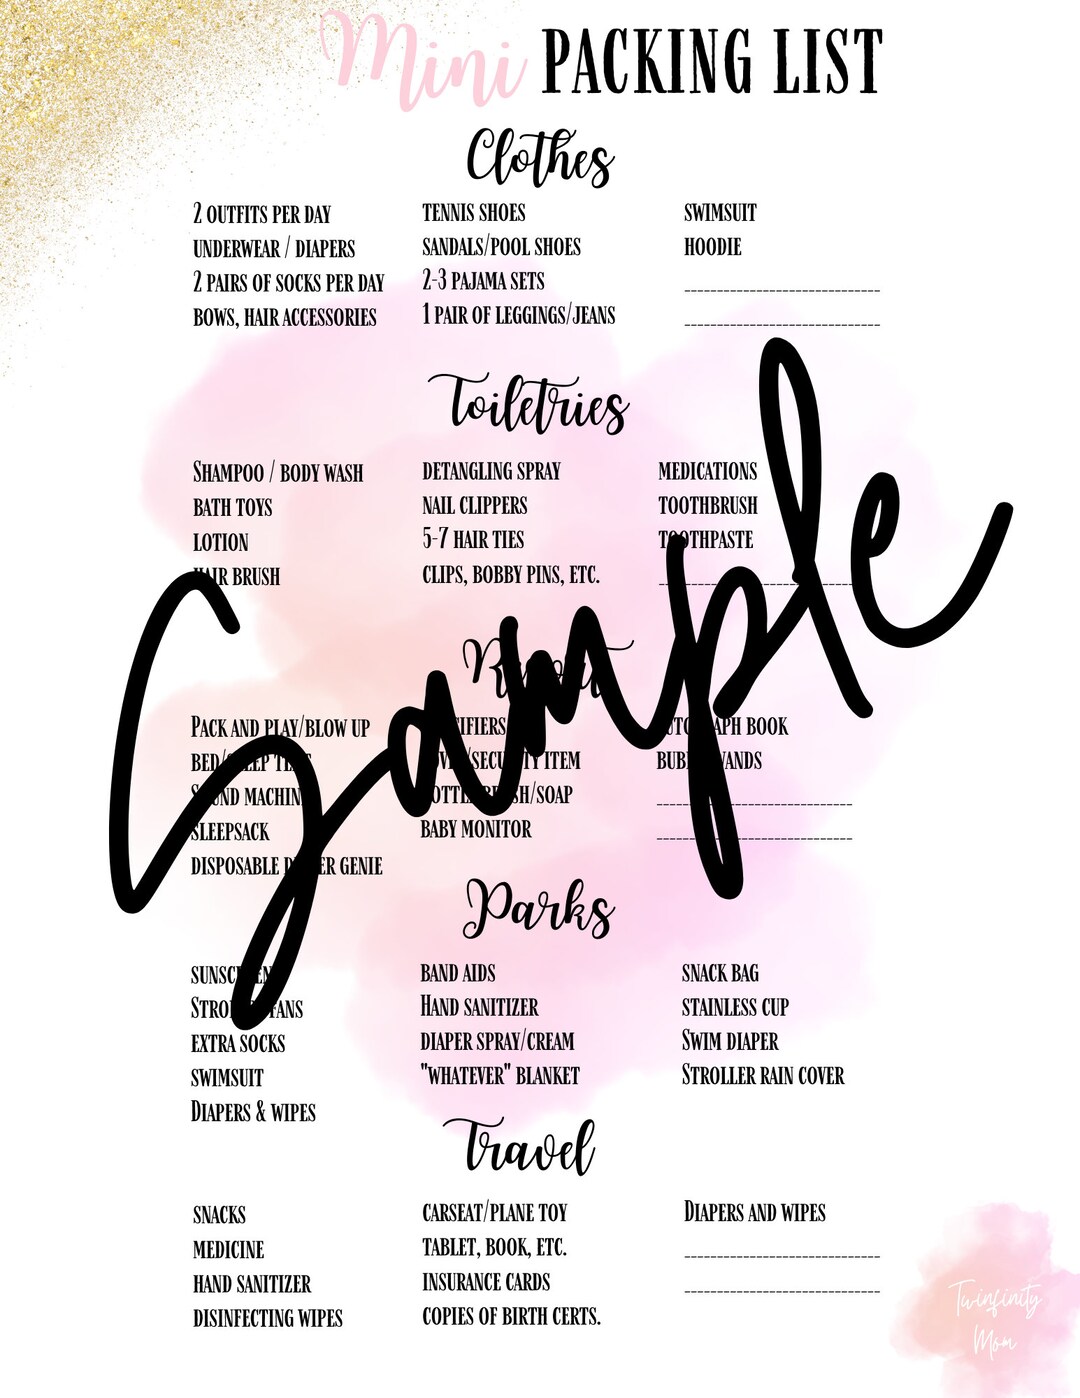 Mini PACKING LIST
Clothes
2 OUTFITS PER DAY
UNDERWEAR / DIAPERS
2 PAIRS OF SOCKS PER DAY
BOWS, HAIR ACCESSORIES
TENNIS SHOES
SANDALS/POOL SHOES
2-3 PAJAMA SETS
1 PAIR OF LEGGINGS/JEANS
SWIMSUIT
HOODIE
Toiletries
SHAMPOO / BODY WASH
BATH TOYS
LOTION
HAIR BRUSH
DETANGLING SPRAY
NAIL CLIPPERS
5-7 HAIR TIES
CLIPS, BOBBY PINS, ETC.
MEDICATIONS
TOOTHBRUSH
TOOTHPASTE
Sample
Resort
PACK AND PLAY/BLOW UP
BED/SLEEP TENT
SOUND MACHINE
SLEEPSACK
DISPOSABLE DIAPER GENIE
PACIFIERS
/SECURITY ITEM
BOTTLE BRUSH/SOAP
BABY MONITOR
AUTOGRAPH BOOK
BUBBLE WANDS
Parks
SUNSCREEN
STROLLER FANS
EXTRA SOCKS
SWIMSUIT
DIAPERS & WIPES
BAND AIDS
HAND SANITIZER
DIAPER SPRAY/CREAM
"WHATEVER" BLANKET
SNACK BAG
STAINLESS CUP
SWIM DIAPER
STROLLER RAIN COVER
Travel
SNACKS
MEDICINE
HAND SANITIZER
DISINFECTING WIPES
CARSEAT/PLANE TOY
TABLET, BOOK, ETC.
INSURANCE CARDS
COPIES OF BIRTH CERTS.
DIAPERS AND WIPES
Twinfinity
Mom